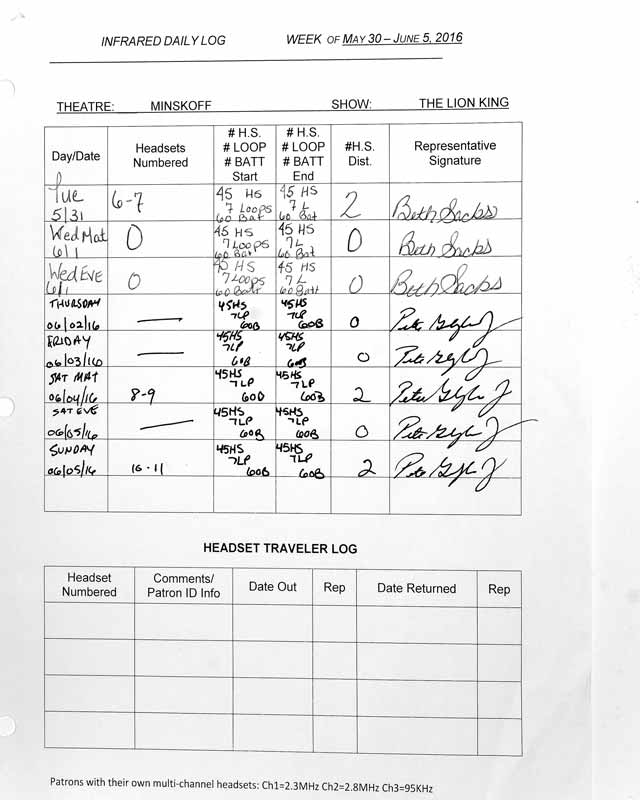 INFRARED DAILY LOG WEEK OF MAY 30 – JUNE 5, 2016
THEATRE: MINSKOFF SHOW: THE LION KING
Day/Date Headsets Numbered # H.S. # LOOP # BATT Start # H.S. # LOOP # BATT End #H.S. Dist. Representative Signature
Tue 5/31 6-7 45 HS 7 Loops 60 Bat 45 HS 7 L 60 Bat 2 Beth Sacks
Wed Mat 6/1 0 45 HS 7 Loops 60 Bat 45 HS 7L 60 Bat 0 Beth Sacks
Wed EVE 6/1 0 HS 7 Loops 60 Batt 45 HS 7 L 60 Batt 0 Beth Sacks
THURSDAY 06/02/16 — 45HS 7LP 60B 45HS 7LP 60B 0
FRIDAY 06/03/16 — 45HS 7LP 60B 45HS 7LP 60B 0
SAT MAT 06/04/16 8-9 45HS 7LP 60B 45HS 7LP 60B 2
SAT EVE 06/05/16 — 45HS 7LP 60B 45HS 7LP 60B 0
SUNDAY 06/05/16 10-11 45HS 7LP 60B 45HS 7LP 60B 2
HEADSET TRAVELER LOG
Headset Numbered Comments/ Patron ID Info Date Out Rep Date Returned Rep
Patrons with their own multi-channel headsets: Ch1=2.3MHz Ch2=2.8MHz Ch3=95KHz